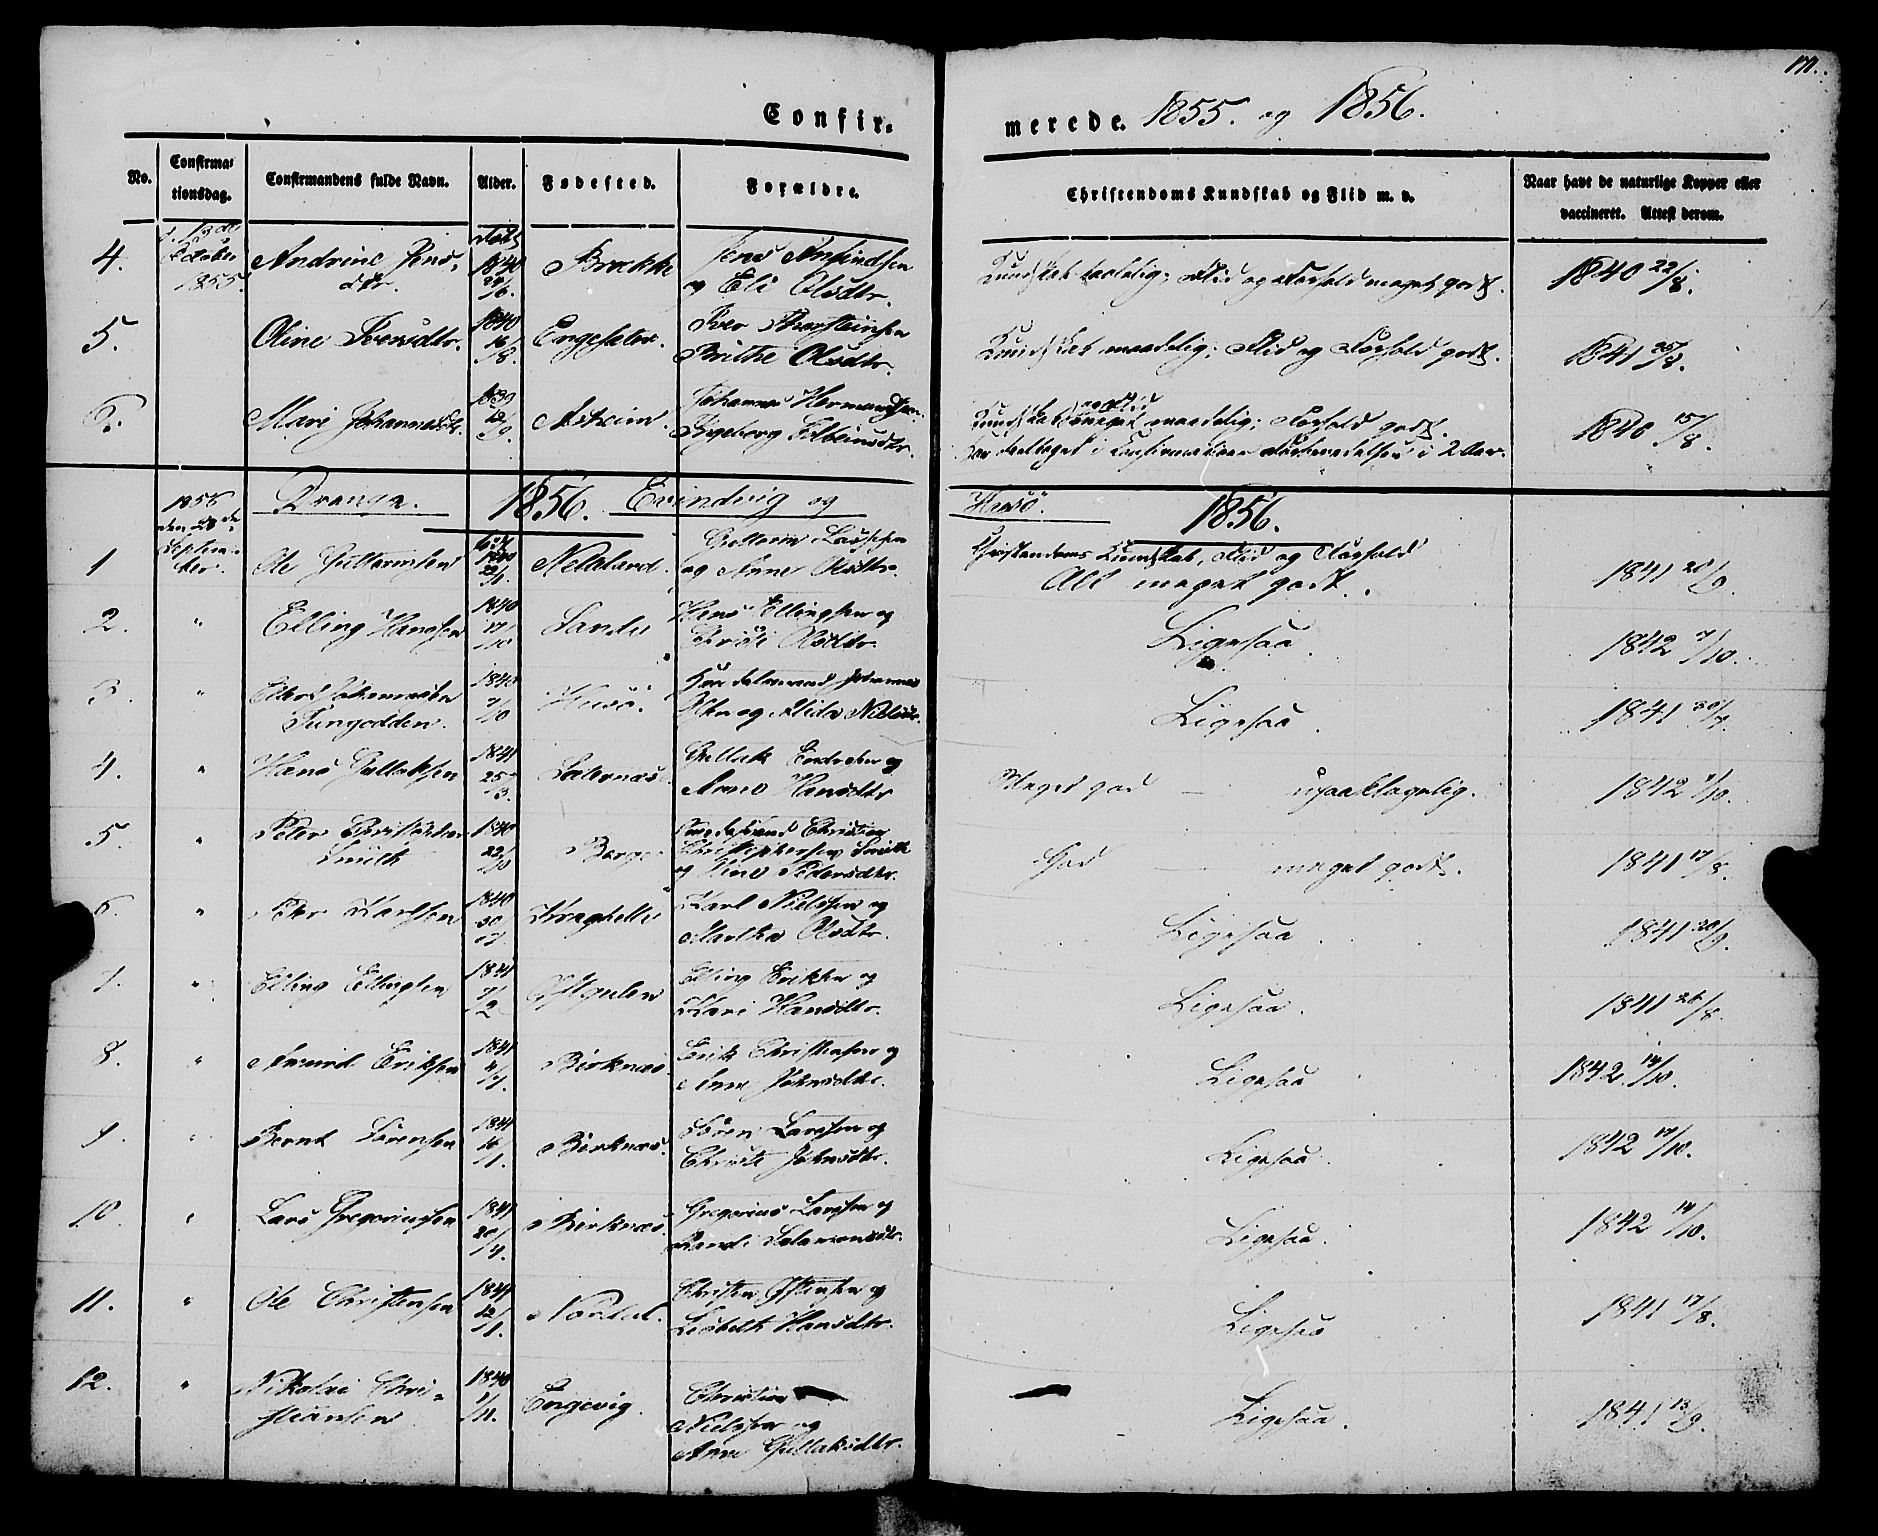 171.
Confir- merede. 1855. og 1856.
No. Confirma-tionsdag. Confirmandens fulde Navn. Alder. Fødested. Forældre. Christendoms Kundskab og Flid m. v. Naar havt de naturlige Kopper eller vaccineret. Attest derom.
4. October 1855. Andrine Jens-dtr. født 1840 Brække Jens Amundsen og Eli Olsdtr. Kundskab taalelig; Flid og Forhold meget godt. 1840 22/8.
5. Oline Iversdtr. 1840 16/8. Engesæter. Iver Thorsteinsen Brithe Olsdtr. Kundskab maadelig; Flid og Forhold godt. 1841 25/8.
6. Mari Johannesdtr. 1839 12/9. Askeim. Johannes Hermundsen. Ingeborg dtr. Kundskab meget maadelig; Forhold godt. Har deeltaget i Confirmations Forberedelsen i 2 Aar. 1840 15/8.
Dranga. 1856. Evindvig og Husö. 1856.
1 1856 den 28de September. Ole Guttormsen født 1840 Nedeland. Guttorm Larssen og Anne Olsdtr. Christendoms Kundskab, Flid og Forhold Alt meget godt. 1841 20/9.
2. " Elling Hansen 1840 17/10 Sande Hans Ellingsen og Olsdtr. Ligesaa. 1842 7/10.
3. " Johannessen 1840 7/10 Husö. Handelsmand Johannes og Alida Nielsdtr. Ligesaa. 1841 20/7.
4. " Hans Gullaksen 1841 25/3. Gullak Endresen og Anne Hansdtr Meget god — upaaklagelig. 1842 7/10.
5. " Peter Smith 1840 22/10 Berge Christian Christophersen Smith og Stine Pedersdtr. God — meget godt. 1841 17/8.
6. " Peter Karlsen 1840 30/7. Kraghelle Karl Nielssen og Martha Olsdtr. Ligesaa. 1841 20/9.
7. " Elling Ellingsen 1841 7/2. Ostgulen Elling Eriksen og Kari Hansdtr. Ligesaa. 1841 26/8.
8. " Amund Eriksen 1841 Birknæs Erik Christensen og Anne Johnsdtr. Ligesaa 1842 14/10.
9. " Bernt Sörensen 1841 16/1. Birknæs. Sören Larssen og Christi Johnsdtr. Ligesaa. 1842 17/10.
10. " Lars Gregoriussen 1841 20/4. Birknæs. Gregorius Larssen og Randi Salamonsdtr. Ligesaa. 1842 14/10.
11. " Ole Christensen 1841 12/1. Nordal. Christen Ostensen og Lisbeth Hansdtr. Ligesaa 1841 17/8.
12. " Nikolai Chri-stiansen 1840 1/11. Engevig. Christian Nielssen og Anne Gullaksdtr. Ligesaa. 1841 13/9.